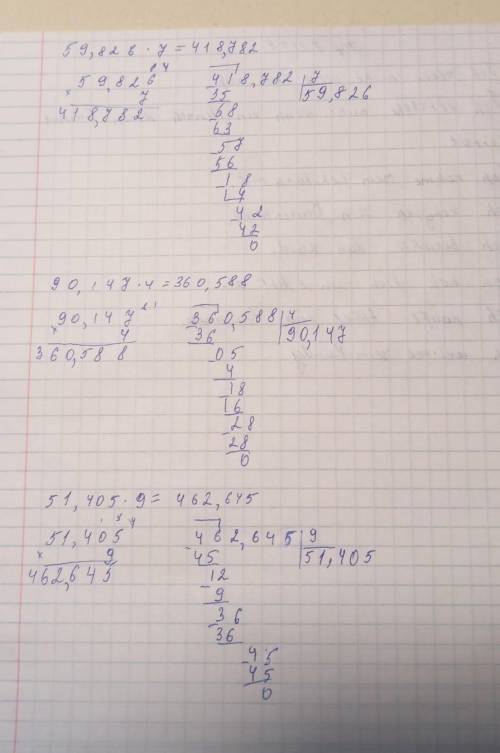 59,826 · 7 = 418,782
6 4
× 59,826
7
418,782
- 418,782 | 7
35 59,826
- 68
63
- 57
56
- 18
14
- 42
42
0
90,147 · 4 = 360,588
2 1
× 90,147
4
360,588
- 360,588 | 4
36 90,147
- 05
4
- 18
16
- 28
28
0
51,405 · 9 = 462,645
51,405
× 9
462,645
- 462,645 | 9
45 51,405
- 12
9
- 36
36
- 45
45
0